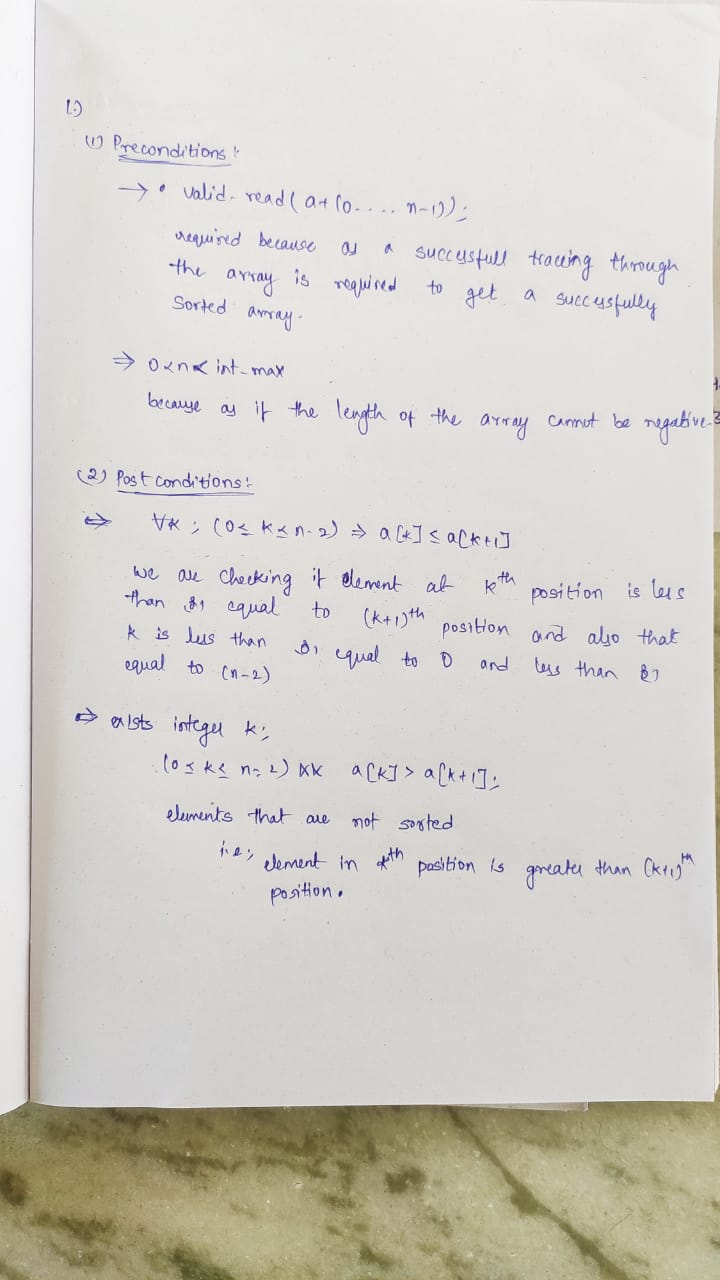 1.)
(1) Preconditions :
→ • valid-read( a+ (0.... n-1));
required because as a successfull traceing through
the array is required to get a successfully
Sorted array.
⇒ 0<n< int-max
because as if the length of the array cannot be negative.
(2) Post conditions:
⇒ ∀k ; (0≤ k≤ n-2) ⇒ a[k] ≤ a[k+1]
we are checking if element at kth position is less
than or equal to (k+1)th position and also that
k is less than or equal to 0 and less than or
equal to (n-2)
⇒ exists integer k;
(0≤ k≤ n-2) && a[k] > a[k+1];
elements that are not sorted
i.e; element in kth position is greater than (k+1)th
position.